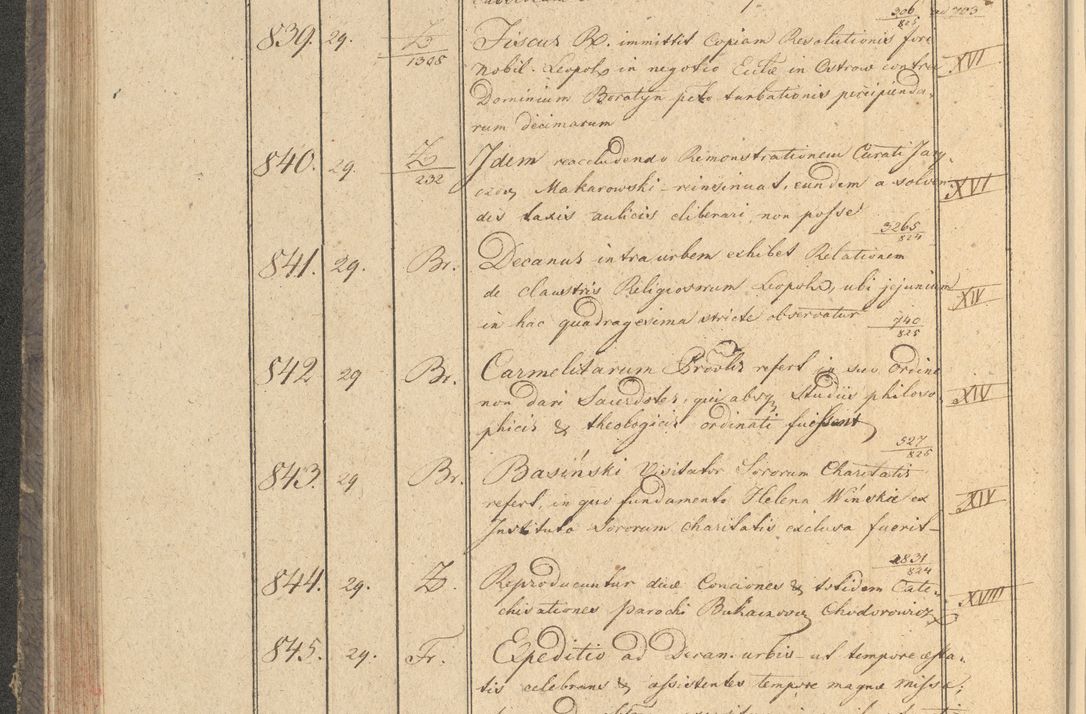 306 ad 703
825
839. 29. Z/1308 Fiscus R. immittit Copiam Resolutionis fori
nobil. Leopol. in negotio Eccliæ in Ostrow contra XVI
Dominium Boratyn pcto turbationis percipienda-
rum decimarum
840. 29. Z/232 Idem reaccludendo Remonstrationem Curati Jary-
Makarowski reinsinuat, eundem a solven- XVI
dis taxis aulicis liberari non posse
3265
824
841. 29. Br. Decanus intra urbem exhibet Relationem
de claustris Religiosorum Leopol, ubi jejunium XIV
in hac quadragesima stricte observatur 740
825
842 29 Br. Carmelitarum Provlis refert in suo Ordine
non dari Sacerdotes, qui absq Studiis philoso- XIV
phicis & theologicis ordinati fuissent
527
825
843. 29 Br. Basiński Visitator Sororum Charitatis
refert, in quo fundamento Helena Wińska ex XIV
Instituto Sororum charitatis exclusa fuerit
2831
824
844. 29. Z. Reproducuntur duæ Conciones & totidem Cate-
chisationes parochi Chodorowicz XVIII
845. 29. Fr. Expeditio ad Decan. urbis ut tempore æsta-
tis celebrans & assistentes tempore magnæ missæ